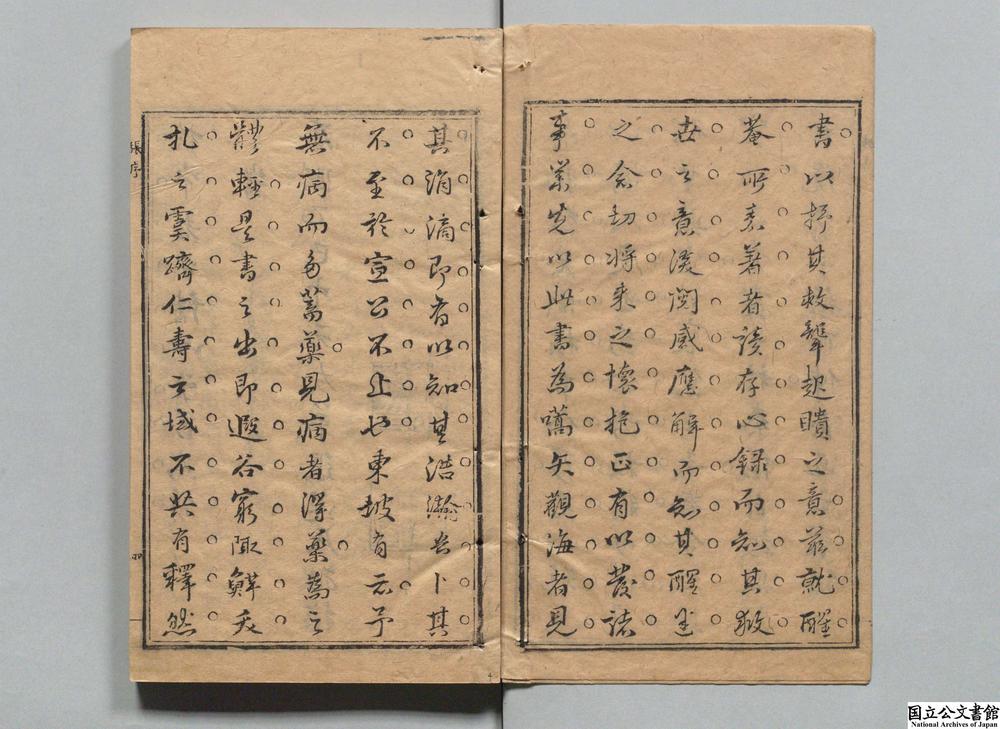 書以抒其救聾起聵之意茲就醒
菴所袤著者讀存心錄而知其救
世之意深閱感應解而知其醒迷
之念切將來之懷抱正有以發諸
事業先以此書為嚆矢觀海者見
其涓滴即有以知其浩瀚吾卜其
不至於宣公不止也東坡有云予
無病而多蓄藥見病者得藥為之
體輕是書之出即遐谷窮陬鮮夭
札之虞躋仁壽之域不共有釋然
張序
四
4
国立公文書館
National Archives of Japan